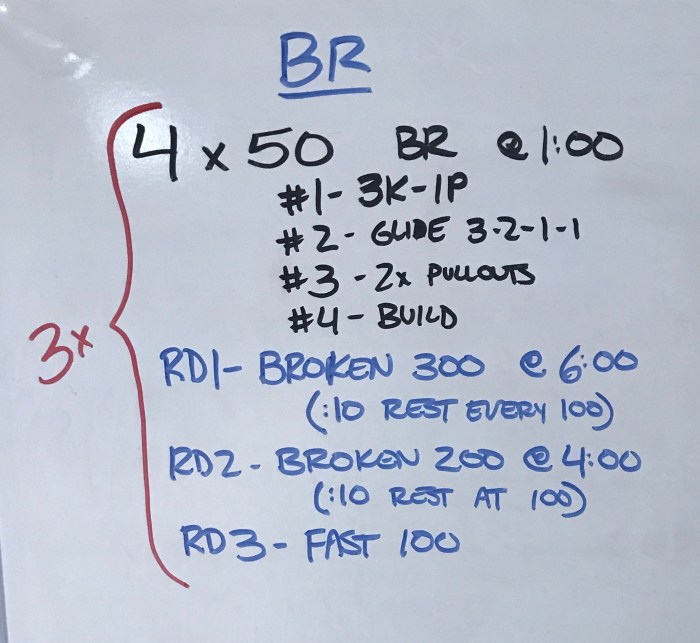 BR
4 x 50 BR @ 1:00
#1- 3K-1P
#2- GLIDE 3-2-1-1
#3 -2x PULLOUTS
#4- BUILD
3x
RD1- BROKEN 300 @ 6:00
(:10 REST EVERY 100)
RD2- BROKEN 200 @ 4:00
(:10 REST AT 100)
RD3- FAST 100